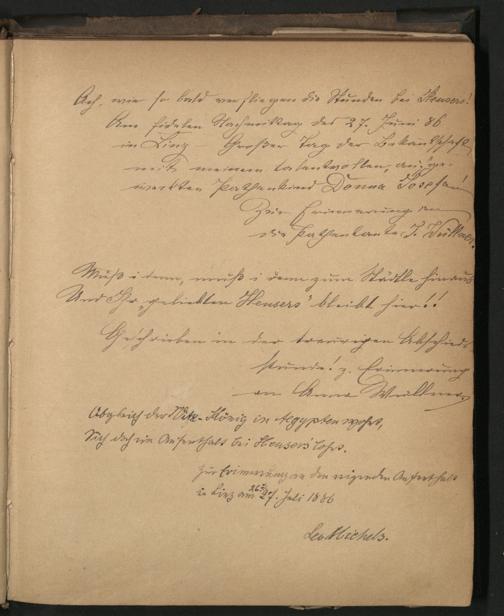 Ach, wie so bald verfliegen die Stunden bei Heusers!
Am fidelen Nachmittag des 27. Juni 86
in Linz – Großer Tag der Bekanntschaft
mit meinem talentvollen, aufge-
weckten Pathenkind Donna Josefa!
Zur Erinnerung an
die Pathentante J. Wüllner.
Muß i denn, muß i denn zum Städtle hinaus
Und Ihr, geliebten "Heusers" bleibt hier!!
Geschrieben in der traurigen Abschieds-
stunde! z. Erinnerung
an Anna Wüllner
Obgleich der Vize-König in Aegypten wohnt,
Sich doch ein Aufenthalt bei Heusers lohnt.
Zur Erinnerung an den Aufenthalt
in Linz am 26./27. Juli 1886
Leo Michels.